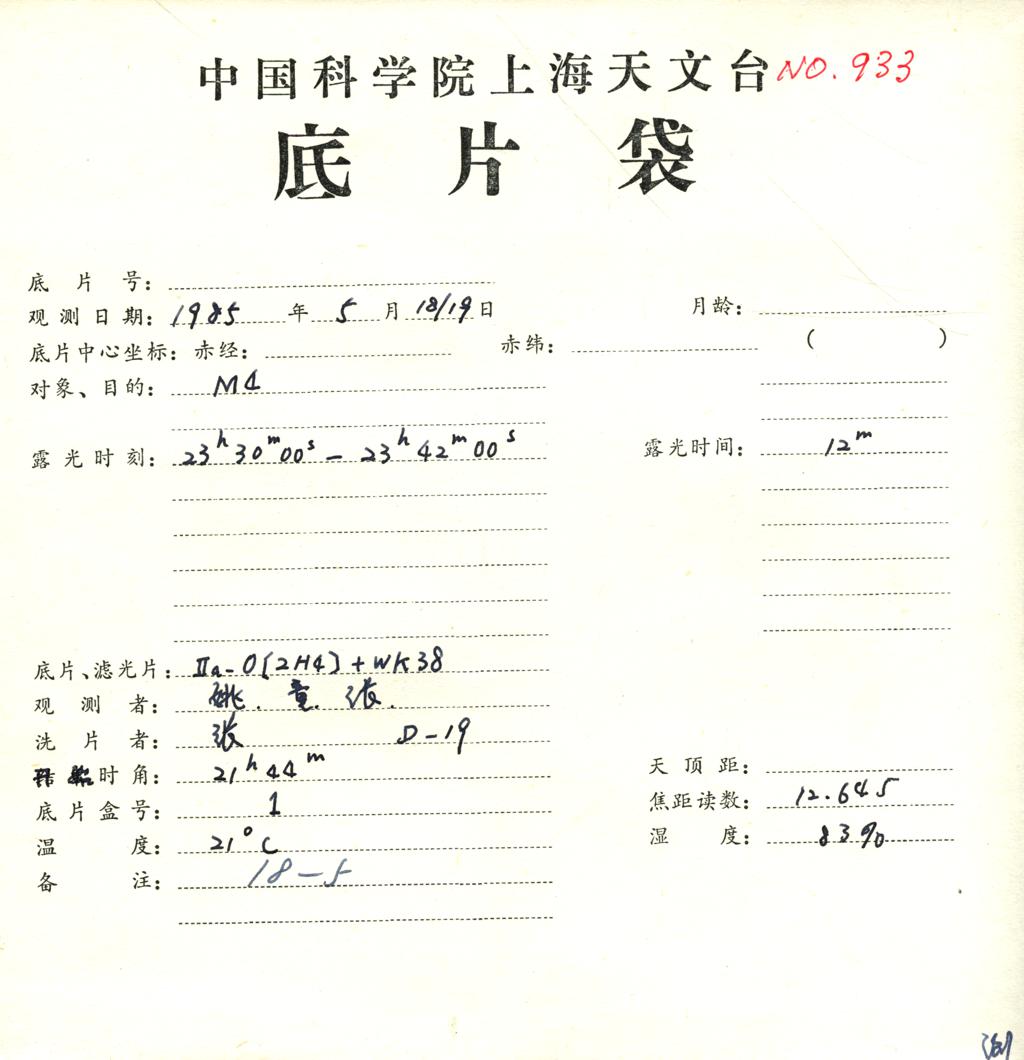 中国科学院上海天文台 NO. 933
底片袋
底片号：
观测日期：1985年5月18/19日 月龄：
底片中心坐标：赤经： 赤纬： ( )
对象、目的：M4
露光时刻：23h30m00s — 23h42m00s 露光时间：12m
底片、滤光片：IIa-O[2H4]+WK38
观测者：姚.童.张.
洗片者：张 D-19
时角：21h44m 天顶距：
底片盒号：1 焦距读数：12.645
温度：21°C 湿度：83%
备注：18-5